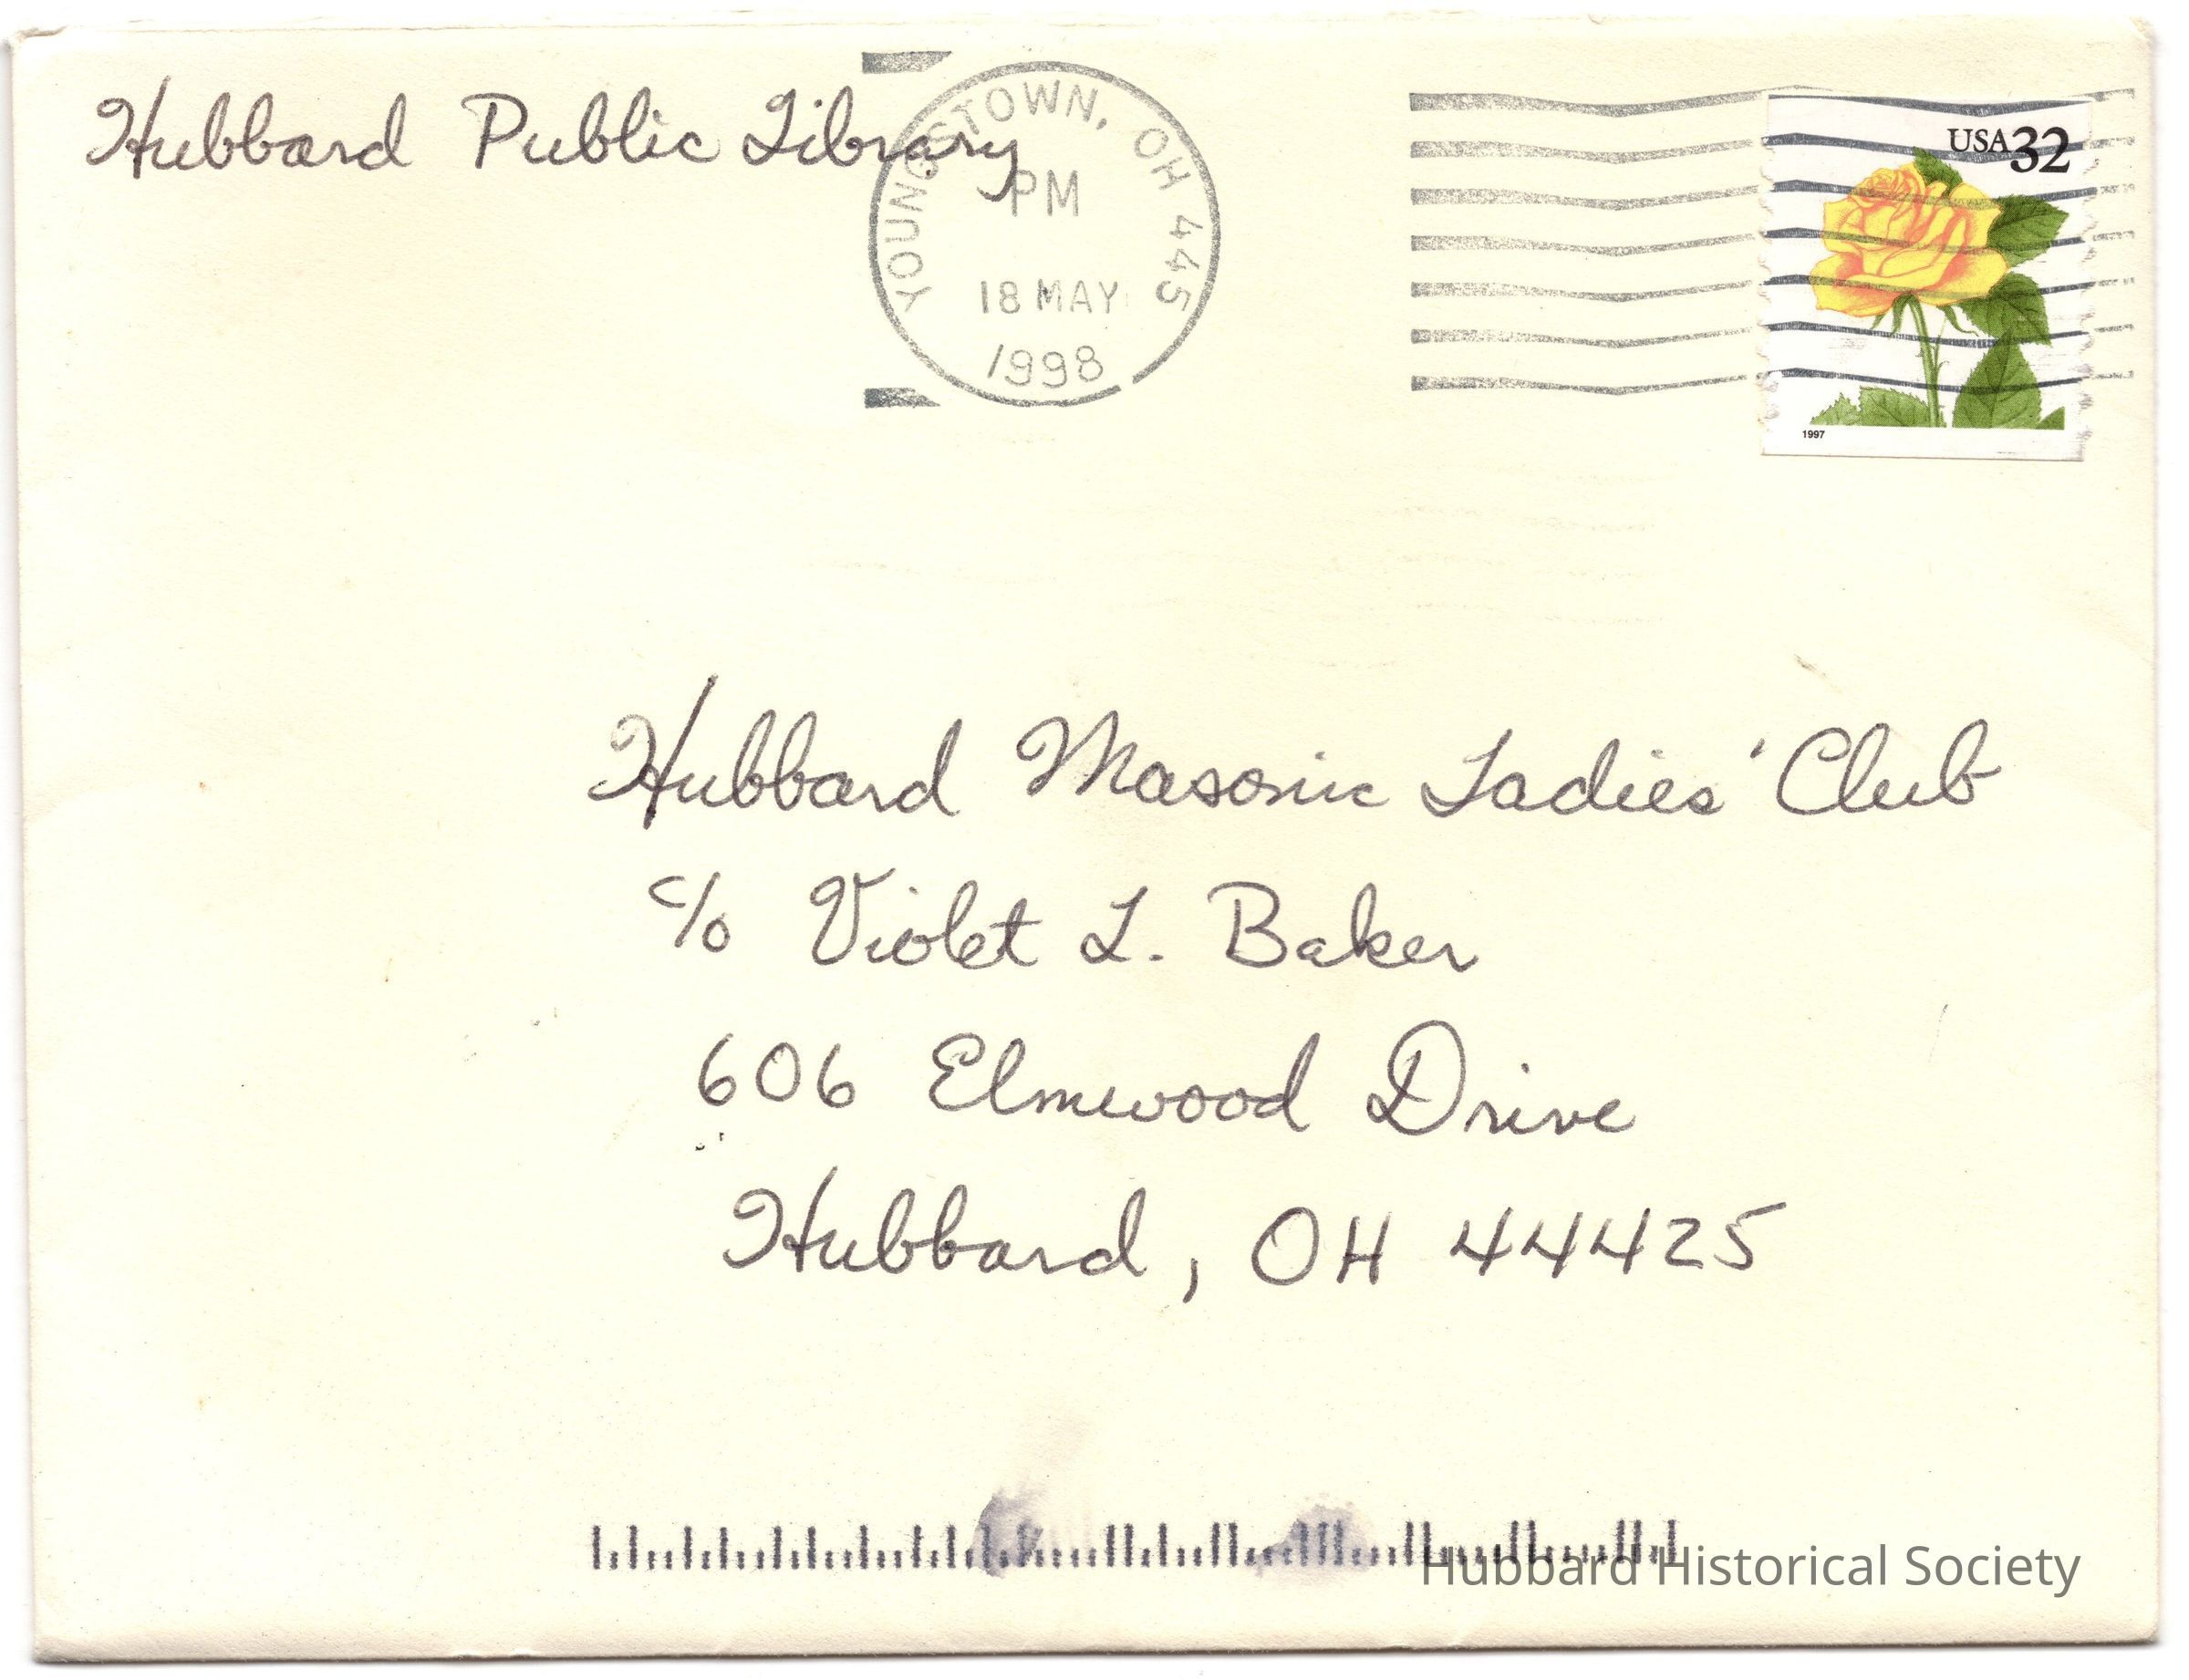 Hubbard Public Library
YOUNGSTOWN, OH 445
PM
18 MAY
1998
USA 32
1997
Hubbard Masonic Ladies' Club
c/o Violet L. Baker
606 Elmwood Drive
Hubbard, OH 44425
Hubbard Historical Society